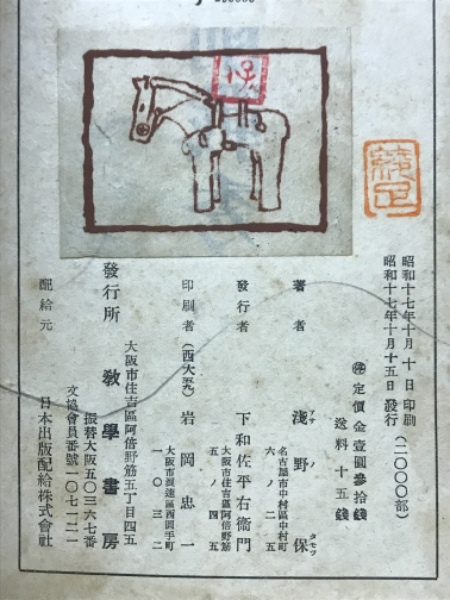 昭和十七年十月十日印刷
昭和十七年十月十五日發行
(二〇〇〇部)
㊕定價金壹圓參拾錢
送料十五錢
著者
淺野保
アサノ
タモツ
名古屋市中村區中村町
六ノ二五
發行者
下和佐平右衞門
大阪市住吉區阿倍野筋
五ノ四五
印刷者
(西大五九)
岩岡忠一
大阪市浪速區西圓手町
一〇三二
發行所
敎學書房
大阪市住吉區阿倍野筋五丁目四五
振替大阪五〇三六七番
文協會員番號一〇七一二一
配給元
日本出版配給株式會社